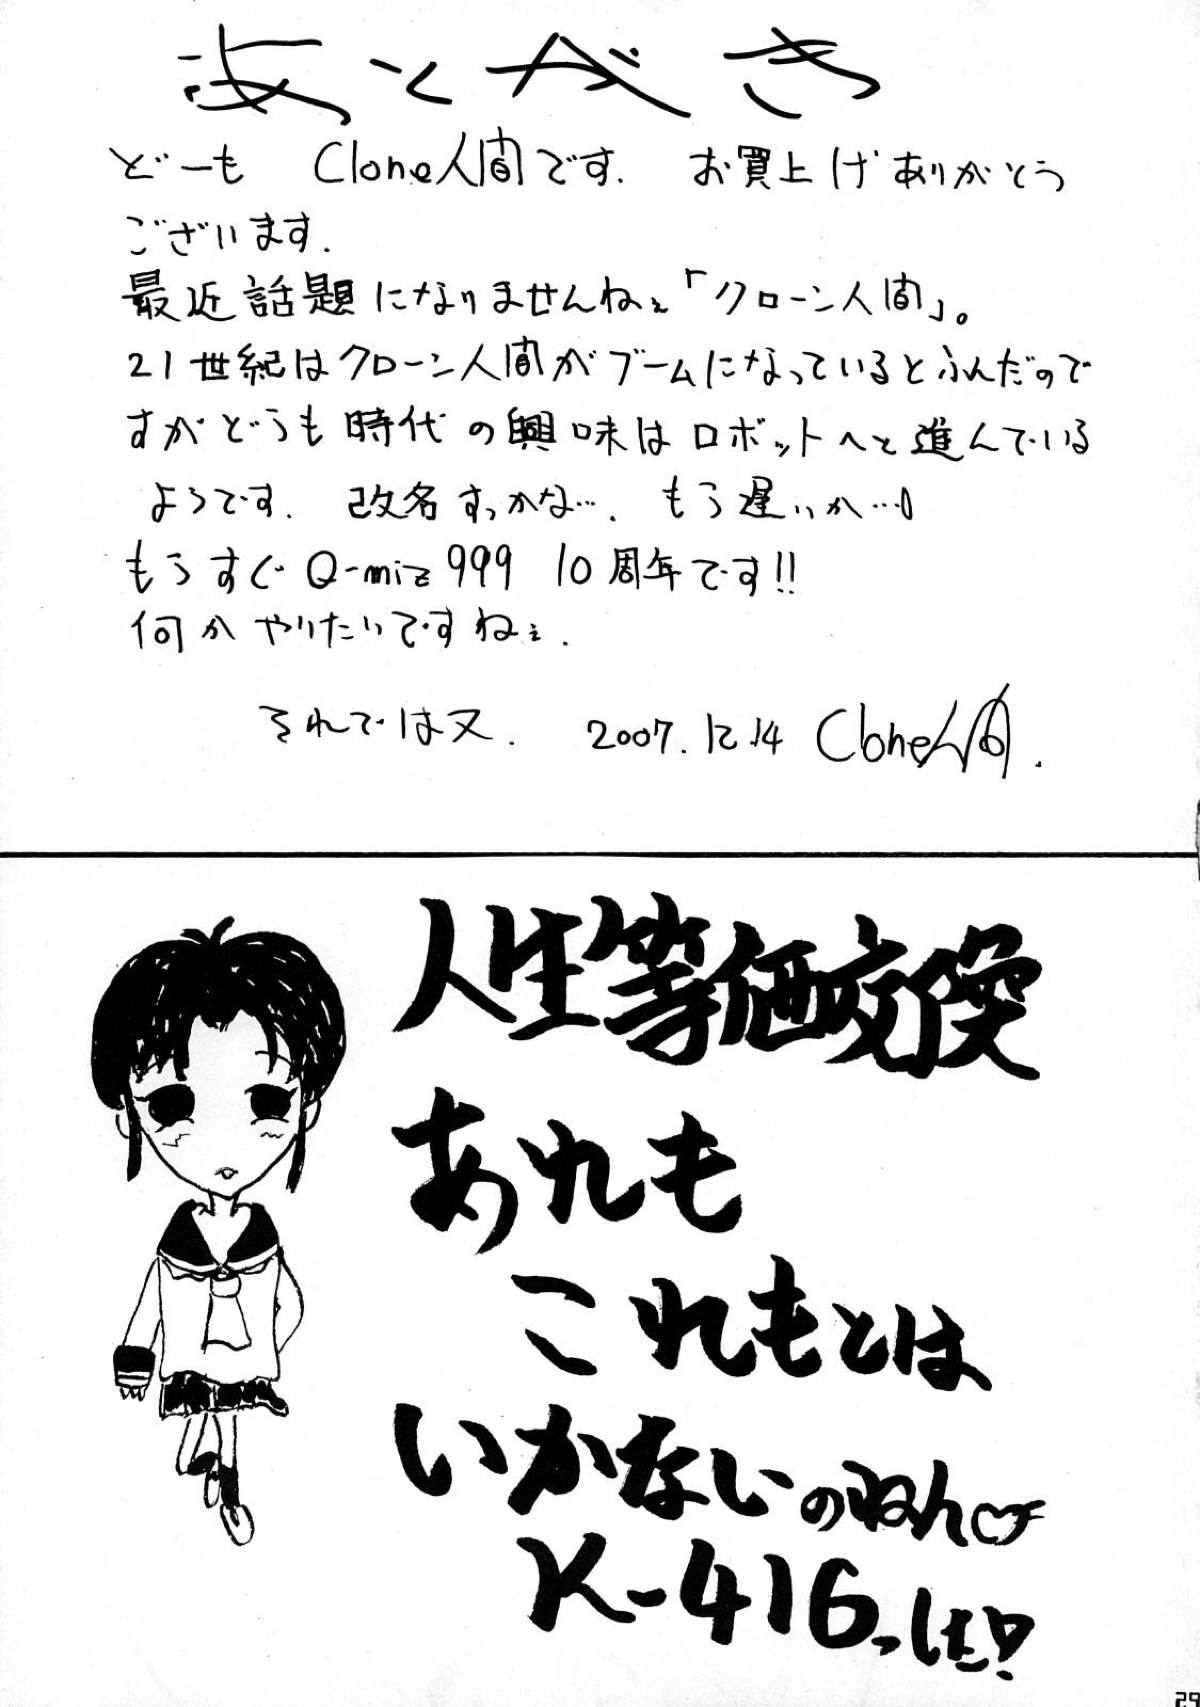 あとがき
どーも Clone人間です. お買上げありがとう
ございます.
最近話題になりませんねぇ「クローン人間」。
21世紀はクローン人間がブームになっているとふんだので
すがどうも時代の興味はロボットへと進んでいる
ようです. 改名すっかな…. もう遅いか…
もうすぐ Q-miz999 10周年です!!
何かやりたいですねぇ.
それでは又. 2007.12.14 Clone人間.
人生等価交換
あれも
これもとは
いかないのねん♡
K-416っす!
29